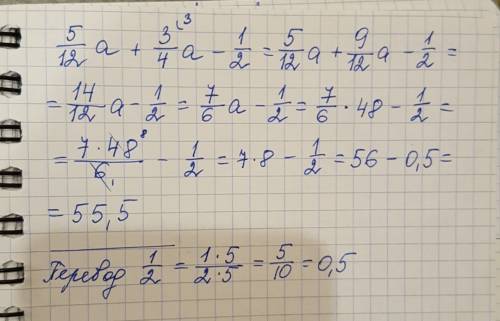 5/12 a + 3/4 ⁽³ a - 1/2 = 5/12 a + 9/12 a - 1/2 =
= 14/12 a - 1/2 = 7/6 a - 1/2 = 7/6 · 48 - 1/2 =
= 7 · 48 ⁸ / 6 ₁ - 1/2 = 7·8 - 1/2 = 56 - 0,5 =
= 55,5
Перевод 1/2 = 1·5/2·5 = 5/10 = 0,5